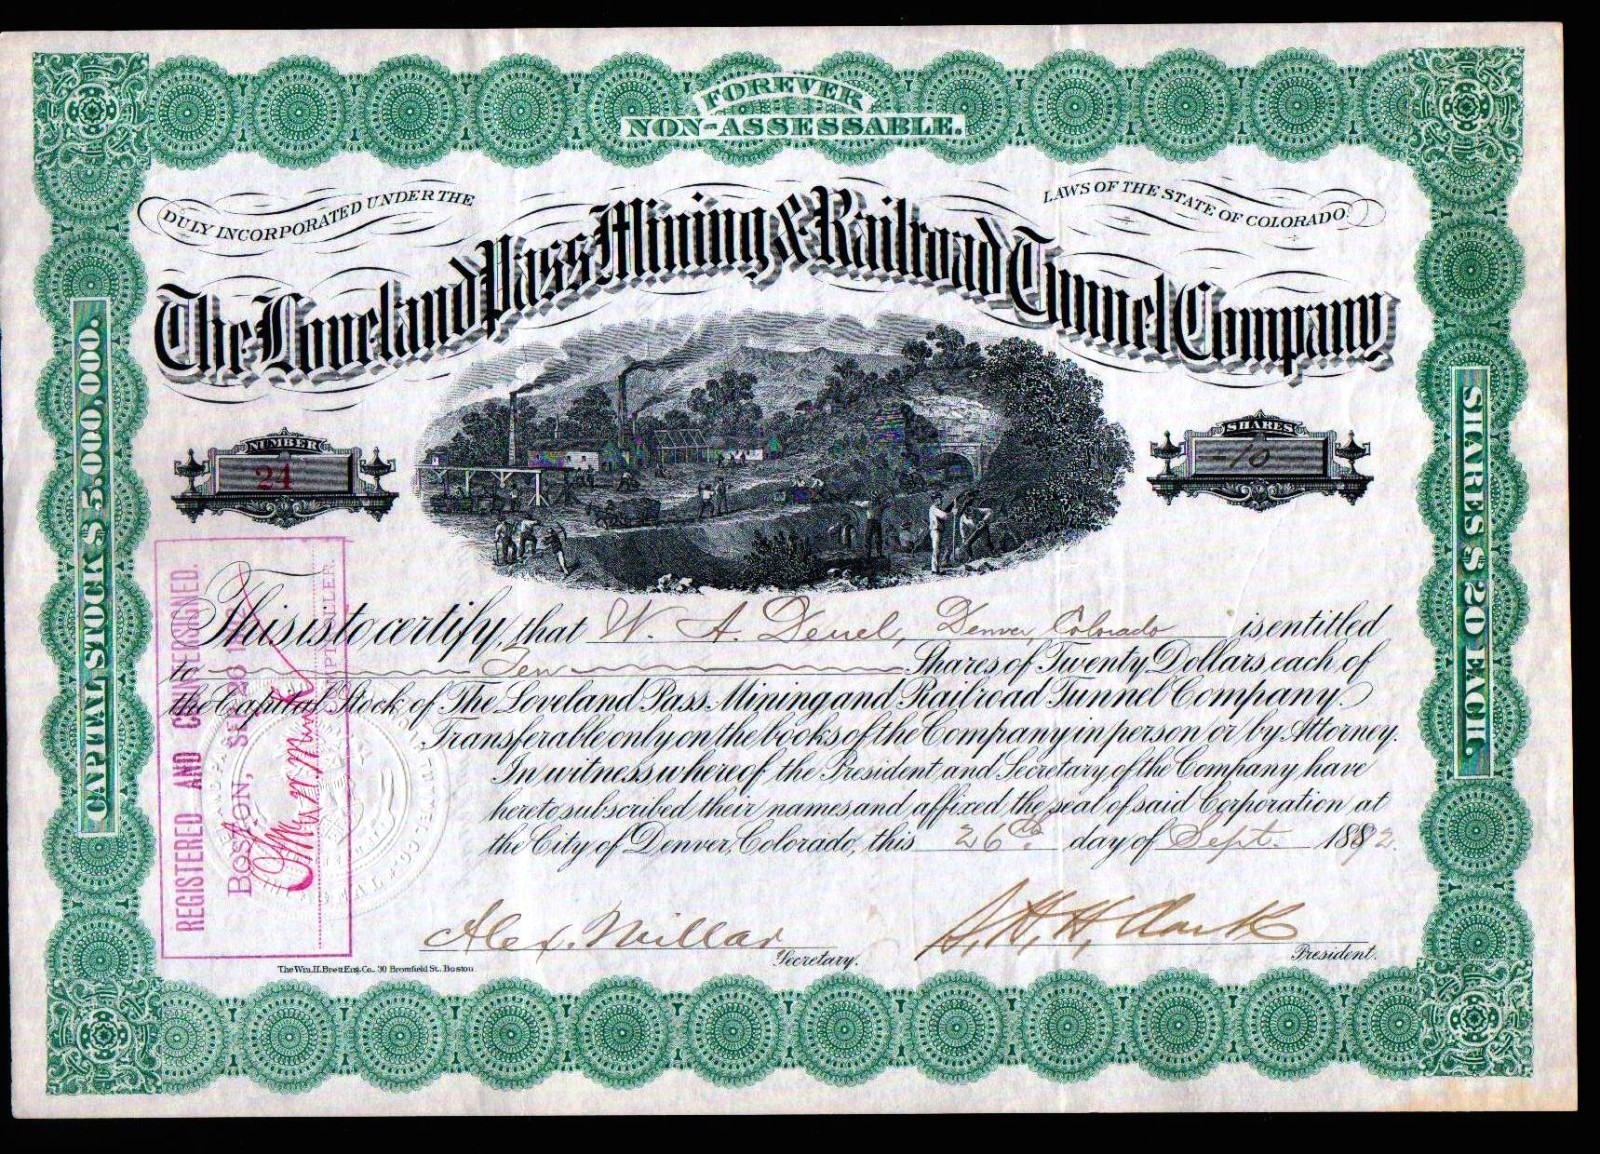 FOREVER
NON-ASSESSABLE.
DULY INCORPORATED UNDER THE
LAWS OF THE STATE OF COLORADO.
The Loveland Pass Mining & Railroad Tunnel Company
CAPITAL STOCK $5.000,000.
SHARES $20 EACH.
NUMBER
21
SHARES
-10
This is to certify, that W. A. Deuel, Denver, Colorado is entitled
to Ten Shares of Twenty Dollars each of
the Capital Stock of The Loveland Pass Mining and Railroad Tunnel Company.
Transferable only on the books of the Company in person or by Attorney.
In witness whereof, the President and Secretary, of the Company have
hereto subscribed their names and affixed the seal of said Corporation at
the City of Denver, Colorado, this 26th. day of Sept. 1882.
REGISTERED AND COUNTERSIGNED.
BOSTON, SEP 26 1882
Alex. Millar
Secretary.
S. H. H. Clark
President.
The Wm. H. Brett Eng. Co. 30 Bromfield St. Boston